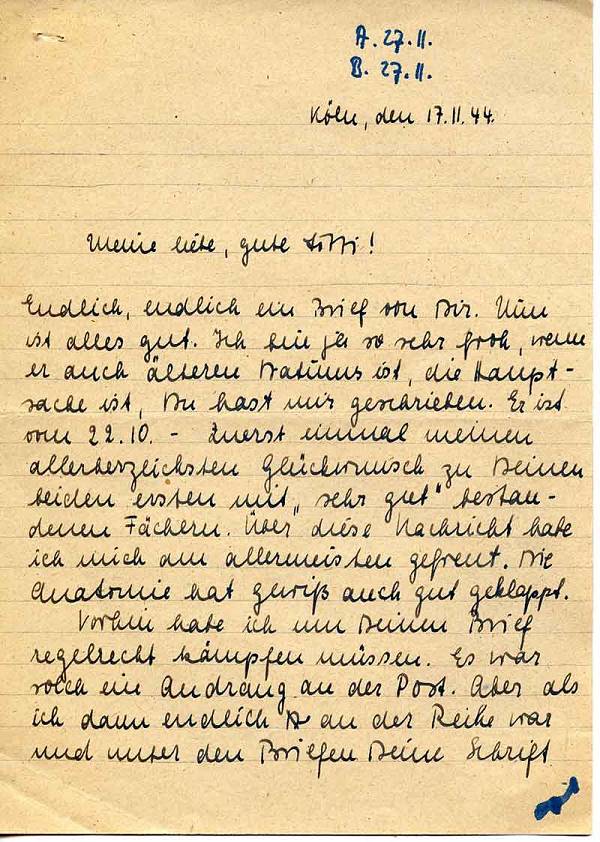 A. 27.11.
B. 27.11.
Köln, den 17.11.44.
Meine liebe, gute Lotti!
Endlich, endlich ein Brief von Dir. Nun
ist alles gut. Ich bin ja so sehr froh, wenn
er auch älteren Datums ist, die Haupt-
sache ist, Du hast mir geschrieben. Er ist
vom 22.10. - Zuerst einmal meinen
allerherzichsten Glückwunsch zu Deinen
beiden ersten mit „sehr gut“ bestan-
denen Fächern. Über diese Nachricht habe
ich mich am allermeisten gefreut. Die
Anatomie hat gewiß auch gut geklappt.
Vorhin habe ich um Deinen Brief
regelrecht kämpfen müssen. Es war
solch ein Andrang an der Post. Aber als
ich dann endlich an der Reihe war
und unter den Briefen Deine Schrift